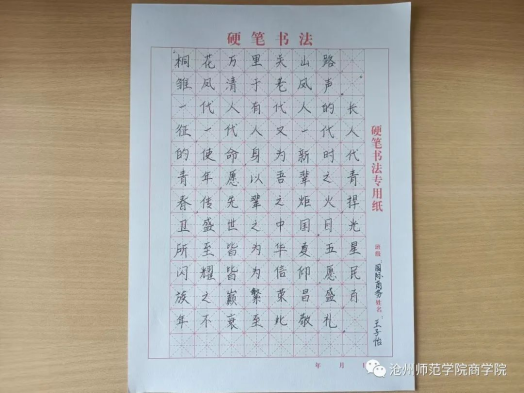 硬笔书法
桐花万里夹山路
雏凤清于老凤声
一代人有代人的长
征一代人又一代人
的使命身为新时代
青年愿以吾辈之青
春传先辈之炬火捍
且盛世之中国日光
所至皆为华夏五星
闪耀皆为信仰愿民
族之巅繁荣昌盛百
年不衰至此敬礼
硬笔书法专用纸
班级 国际商务 姓名 王子怡
年 月 日
沧州师范学院商学院